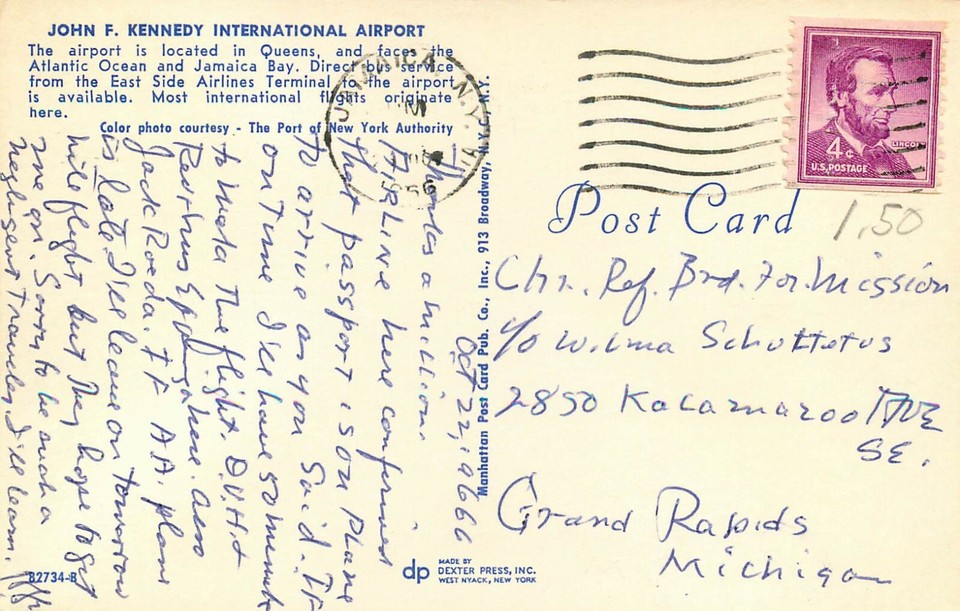 JOHN F. KENNEDY INTERNATIONAL AIRPORT
The airport is located in Queens, and faces the
Atlantic Ocean and Jamaica Bay. Direct bus service
from the East Side Airlines Terminal to the airport
is available. Most international flights originate
here.
Color photo courtesy - The Port of New York Authority
Oct 22, 1966
Thanks a million.
AIRLINE here confirmed
that passport is on plane
to arrive as you said. If
on time I'll have 50 minutes
to make the flight. D.V. H +
here also
Jack Roeda. If AA. plane
is late I'll leave on tomorrow
nite flight but they hope to get
me on. Sorry to be such a
negligent traveler, I'll learn.
82734-B
Manhattan Post Card Pub. Co., Inc., 913 Broadway, N.Y.C., N.Y.
dp
MADE BY
DEXTER PRESS, INC.
WEST NYACK, NEW YORK
JAMAICA, N.Y.
4¢
LINCOLN
U.S. POSTAGE
1.50
Post Card
Chr. Ref. Brd. For. Mission
c/o Wilma
2850 Kalamazoo AVE
SE.
Grand Rapids
Michigan